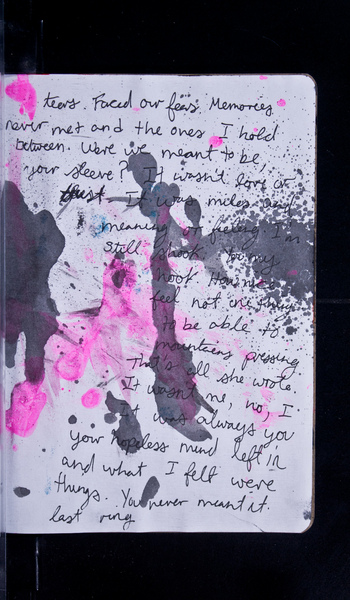 tears. Faced our fears. Memories
never met and the ones I hold
between. Were we meant to be,
your sleeve? It wasn't love or
It was miles and
meaning or feeling. I'm
still shook to my
root. How not
feel not one thing
to be able to
mountains pressing
That's all she wrote
It wasn't me, no, I
It was always you
your hopeless mind left in
and what I felt were
things. You never meant it.
last ring